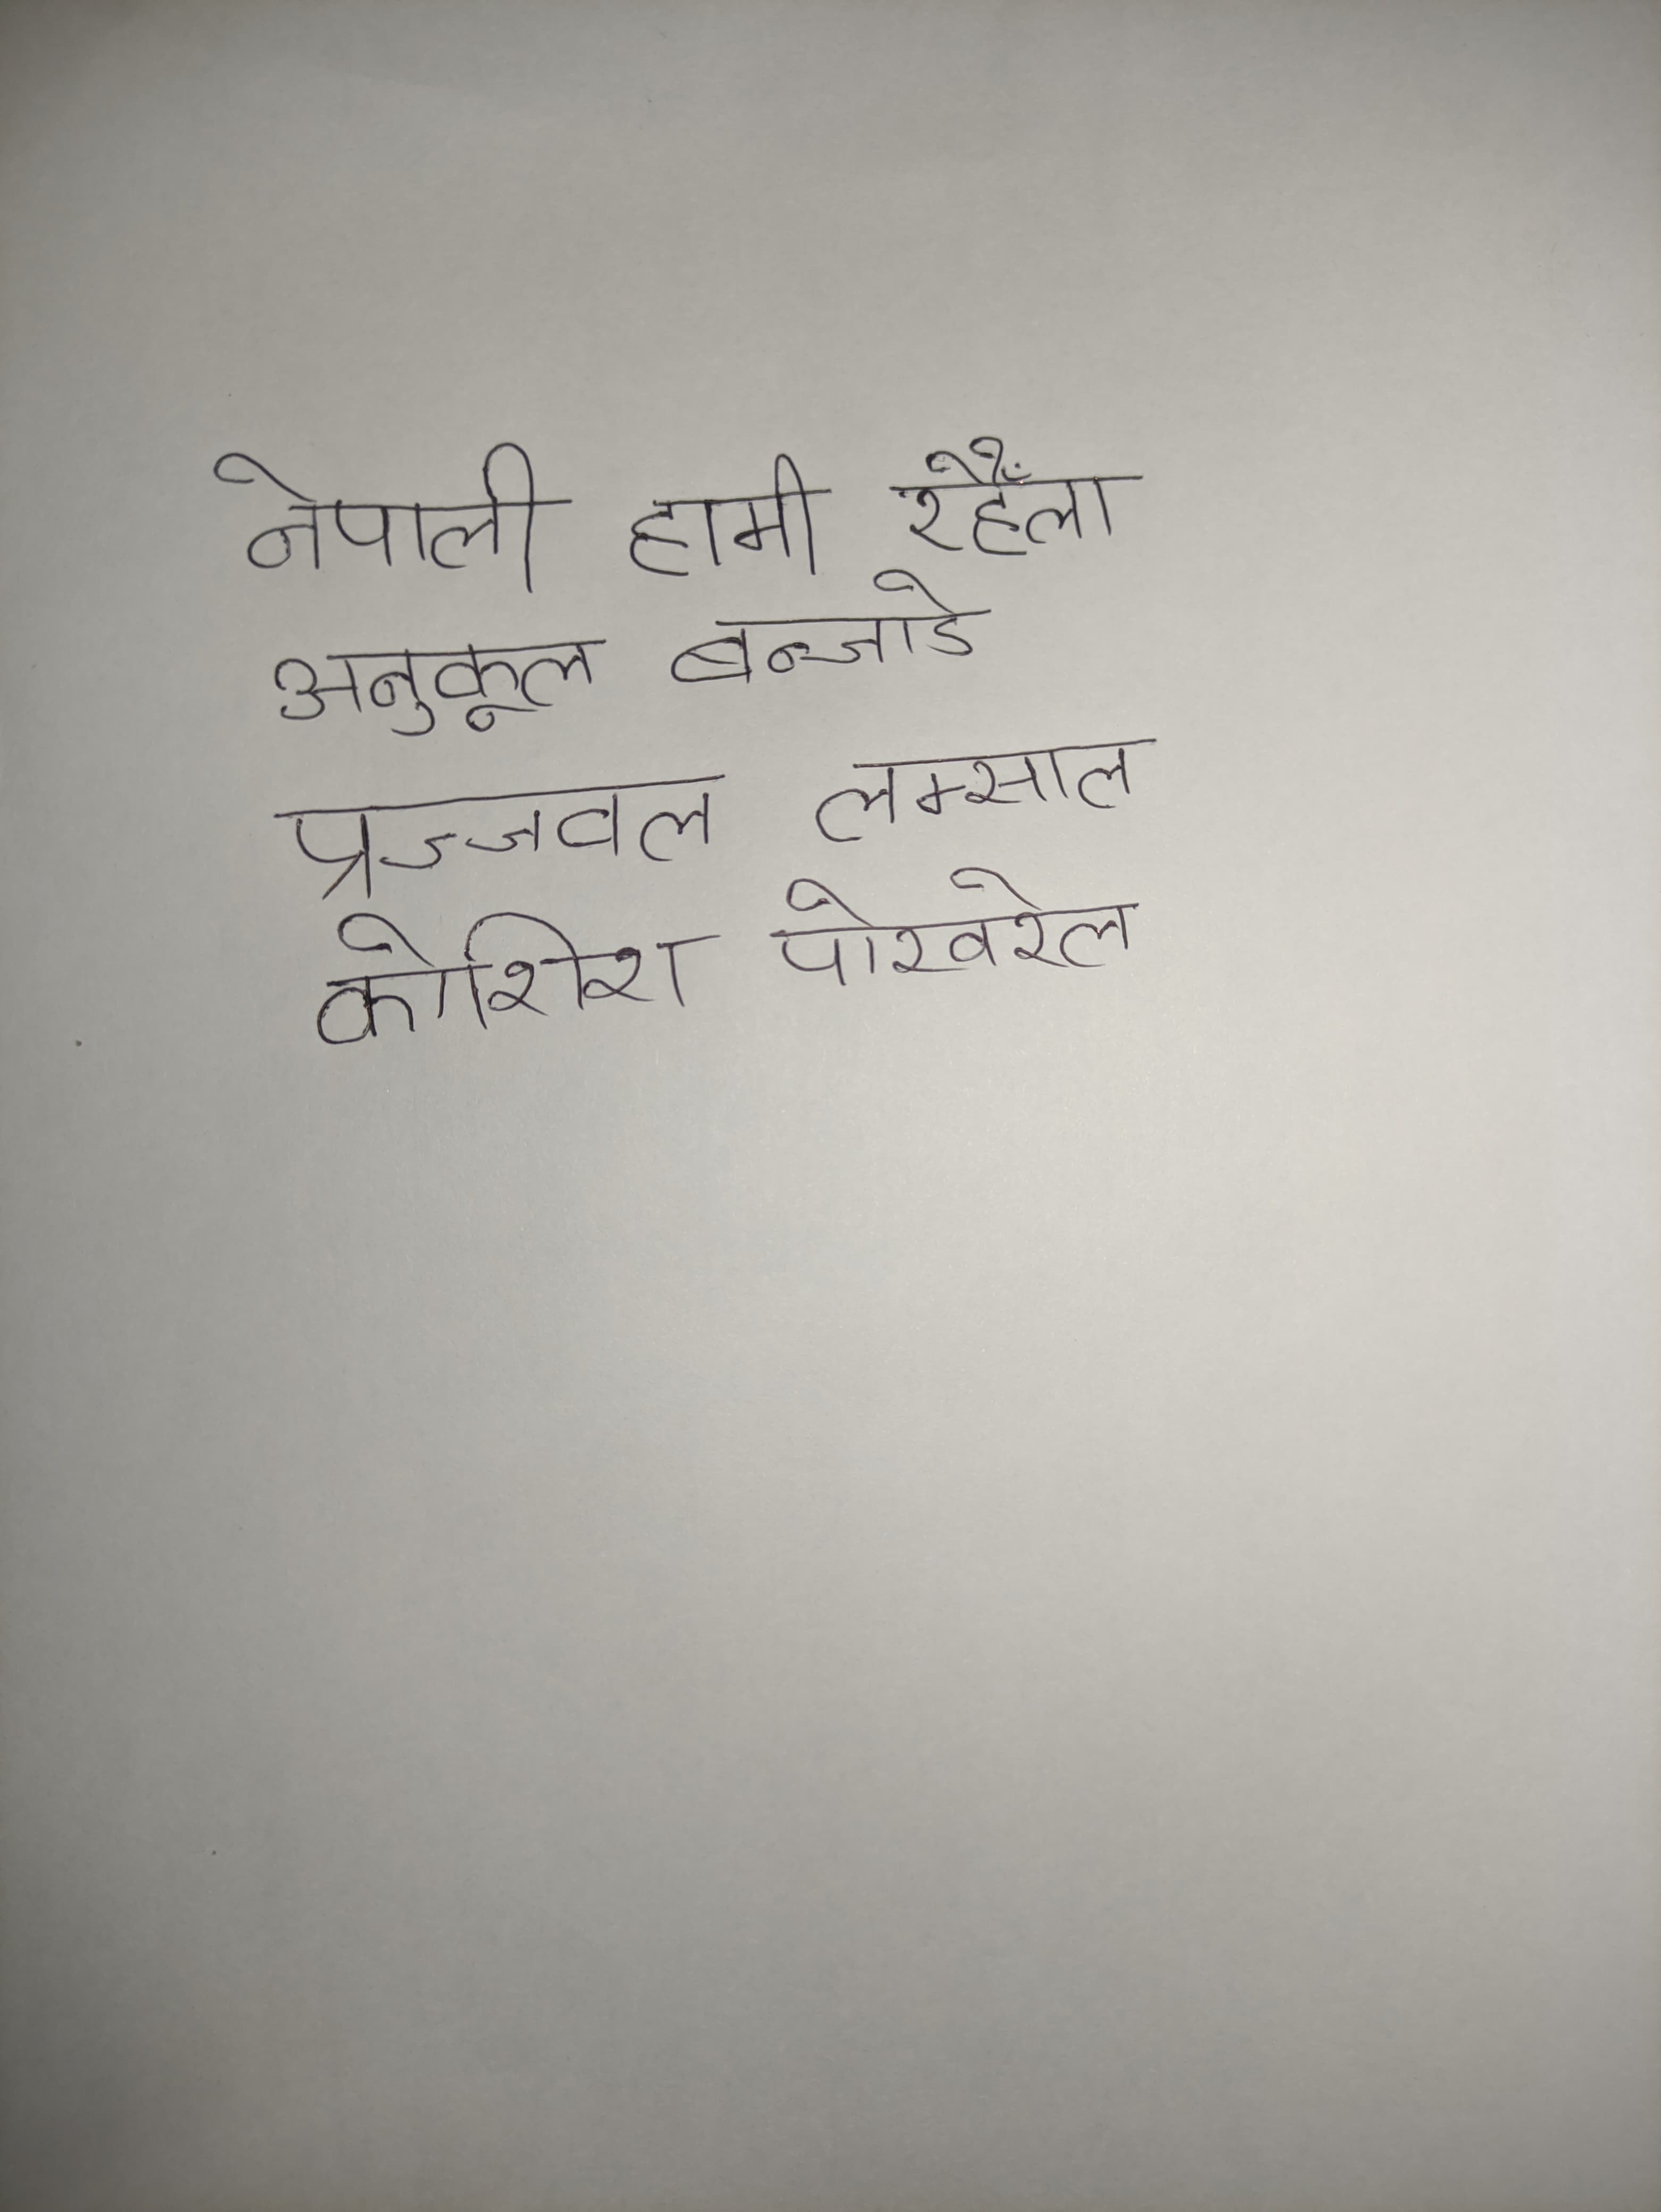 नेपाली हामी रहैँला
अनुकूल बन्जाडे
प्रज्जवल लम्साल
कोशिश पोखरेल